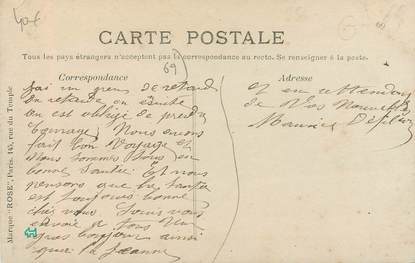 40f
CARTE POSTALE
Tous les pays étrangers n'acceptent pas la correspondance au recto. Se renseigner à la poste.
69
Correspondance
Adresse
Marque "ROSE", Paris. 145, rue du Temple
j'ai un peu de retard
en retard on
on est obligé de prendre
courage. Nous avons
fait bon voyage et
nous sommes tous en
bonne santé. Et nous
pensons que la santé
est toujours bonne
chez vous. nous vous
envoie a tous un
gros bonjour ainsi
que la Jeanne
et en attendant
de vos nouvelles
Maurice